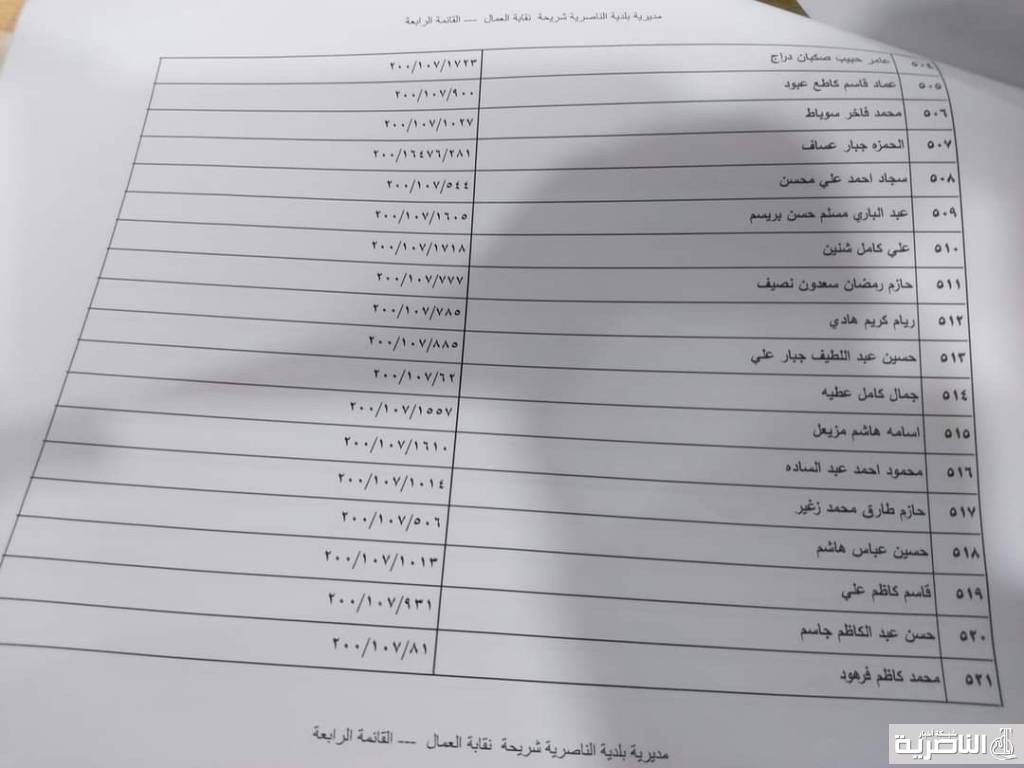 مديرية بلدية الناصرية شريحة نقابة العمال --- القائمة الرابعة
٥٠٤ عامر حبيب صكبان دراج ٢٠٠/١٠٧/١٧٢٣
٥٠٥ عماد قاسم كاطع عبود ٢٠٠/١٠٧/٩٠٠
٥٠٦ محمد فاخر سوياط ٢٠٠/١٠٧/١٠٢٧
٥٠٧ الحمزه جبار عساف ٢٠٠/١٦٤٧٦/٢٨١
٥٠٨ سجاد احمد علي محسن ٢٠٠/١٠٧/٥٤٤
٥٠٩ عبد الباري مسلم حسن بريسم ٢٠٠/١٠٧/١٦٠٥
٥١٠ علي كامل شنين ٢٠٠/١٠٧/١٧١٨
٥١١ حازم رمضان سعدون نصيف ٢٠٠/١٠٧/٧٧٧
٥١٢ ريام كريم هادي ٢٠٠/١٠٧/٧٨٥
٥١٣ حسين عبد اللطيف جبار علي ٢٠٠/١٠٧/٨٨٥
٥١٤ جمال كامل عطيه ٢٠٠/١٠٧/٦٢
٥١٥ اسامه هاشم مزيعل ٢٠٠/١٠٧/١٥٥٧
٥١٦ محمود احمد عبد الساده ٢٠٠/١٠٧/١٦١٠
٥١٧ حازم طارق محمد زغير ٢٠٠/١٠٧/١٠١٤
٥١٨ حسين عباس هاشم ٢٠٠/١٠٧/٥٠٦
٥١٩ قاسم كاظم علي ٢٠٠/١٠٧/١٠١٣
٥٢٠ حسن عبد الكاظم جاسم ٢٠٠/١٠٧/٩٣١
٥٢١ محمد كاظم فرهود ٢٠٠/١٠٧/٨١
مديرية بلدية الناصرية شريحة نقابة العمال --- القائمة الرابعة
شبكة أخبار
الناصرية